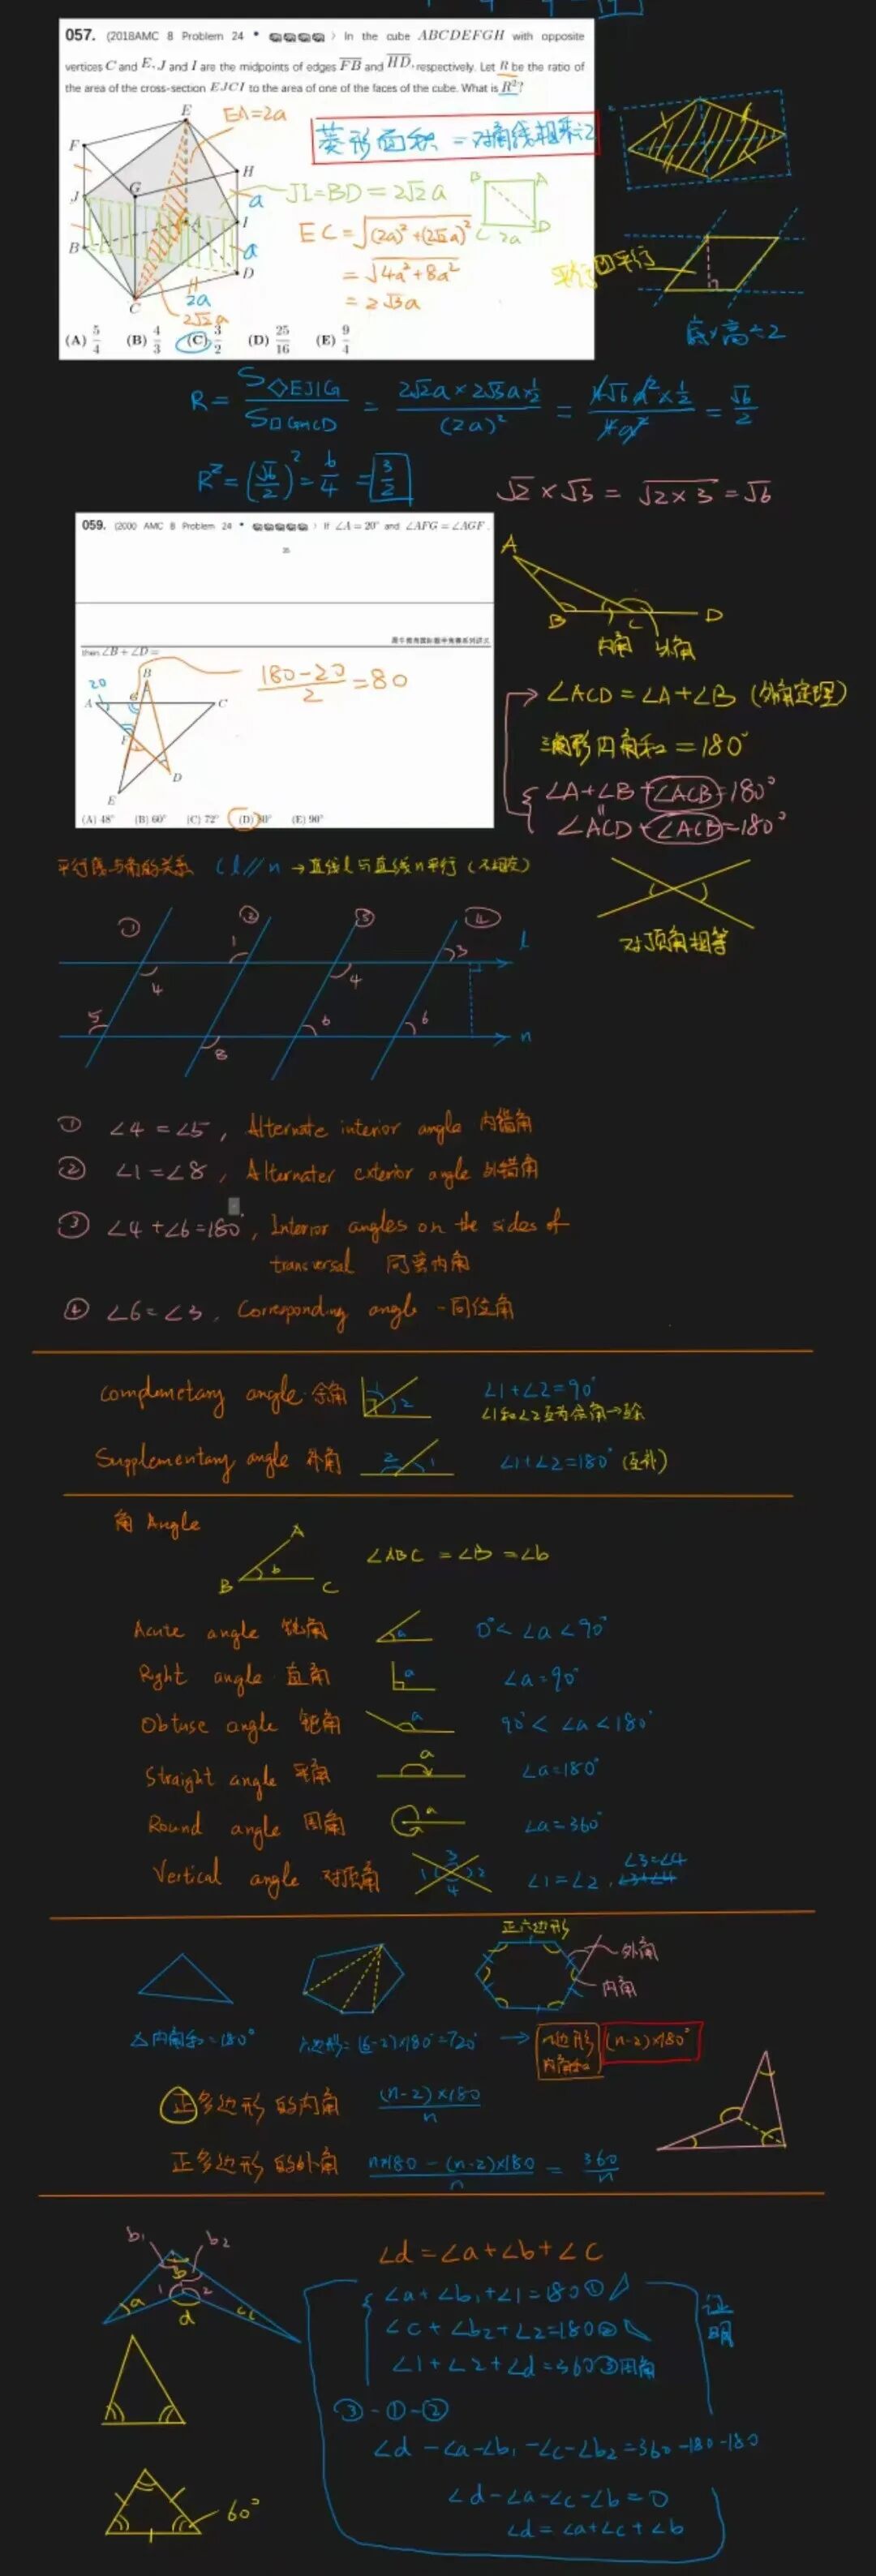 057. (2018AMC 8 Problem 24 • ) In the cube ABCDEFGH with opposite
vertices C and E, J and I are the midpoints of edges FB and HD, respectively. Let R be the ratio of
the area of the cross-section EJCI to the area of one of the faces of the cube. What is R²?
E
EA=2a
菱形面积 = 对角线相乘÷2
F
H
G
J
a
JI=BD=2√2a
B A
C 2a D
I
EC=√(2a)²+(2√2a)²
平行四平行
B
a
D
=√4a²+8a²
2a
=2√3a
C
2√2a
底×高÷2
(A) 5/4 (B) 4/3 (C) 3/2 (D) 25/16 (E) 9/4
R = S◇EJIG / S□GHCD = 2√2a×2√3a×½ / (2a)² = 4√6a²×½ / 4a² = √6/2
R²=(√6/2)²=6/4=3/2
√2×√3=√2×3=√6
059. (2000 AMC 8 Problem 24 • ) If ∠A=20° and ∠AFG=∠AGF,
35
犀牛教育国际数学竞赛系列讲义
then ∠B+∠D=
A
B C D
内角 外角
B
20
180-20 / 2 =80
A G C
F
D
E
∠ACD=∠A+∠B (外角定理)
三角形内角和=180°
∠A+∠B+∠ACB=180°
∠ACD+∠ACB=180°
(A) 48° (B) 60° (C) 72° (D) 80° (E) 90°
平行线与角的关系 (l//n → 直线l与直线n平行 (不相交)
对顶角相等
① ② ③ ④
1 3 l
4 4
5 6 6
8 n
① ∠4=∠5, Alternate interior angle 内错角
② ∠1=∠8, Alternater exterior angle 外错角
③ ∠4+∠6=180°, Interior angles on the sides of
transversal 同旁内角
④ ∠6=∠3, Corresponding angle - 同位角
Complemetary angle 余角 1 2 ∠1+∠2=90°
∠1和∠2互为余角→互余
Supplementary angle 补角 2 1 ∠1+∠2=180° (互补)
角 Angle
A
B b C
∠ABC=∠B=∠b
Acute angle 锐角 a 0°<∠a<90°
Right angle 直角 a ∠a=90°
Obtuse angle 钝角 a 90°<∠a<180°
Straight angle 平角 a ∠a=180°
Round angle 周角 a ∠a=360°
Vertical angle 对顶角 1 3 2 4 ∠1=∠2, ∠3=∠4
正六边形
外角
内角
△内角和=180° 六边形=(6-2)×180°=720° → n边形内角和 (n-2)×180°
正多边形的内角 (n-2)×180 / n
正多边形的外角 n×180-(n-2)×180 / n = 360/n
b₁ b₂
b
a 1 2 c
d
∠d=∠a+∠b+∠c
∠a+∠b₁+∠1=180①
∠c+∠b₂+∠2=180②
∠1+∠2+∠d=360③周角
证明
③-①-②
∠d-∠a-∠b₁-∠c-∠b₂=360-180-180
∠d-∠a-∠c-∠b=0
∠d=∠a+∠c+∠b
60°